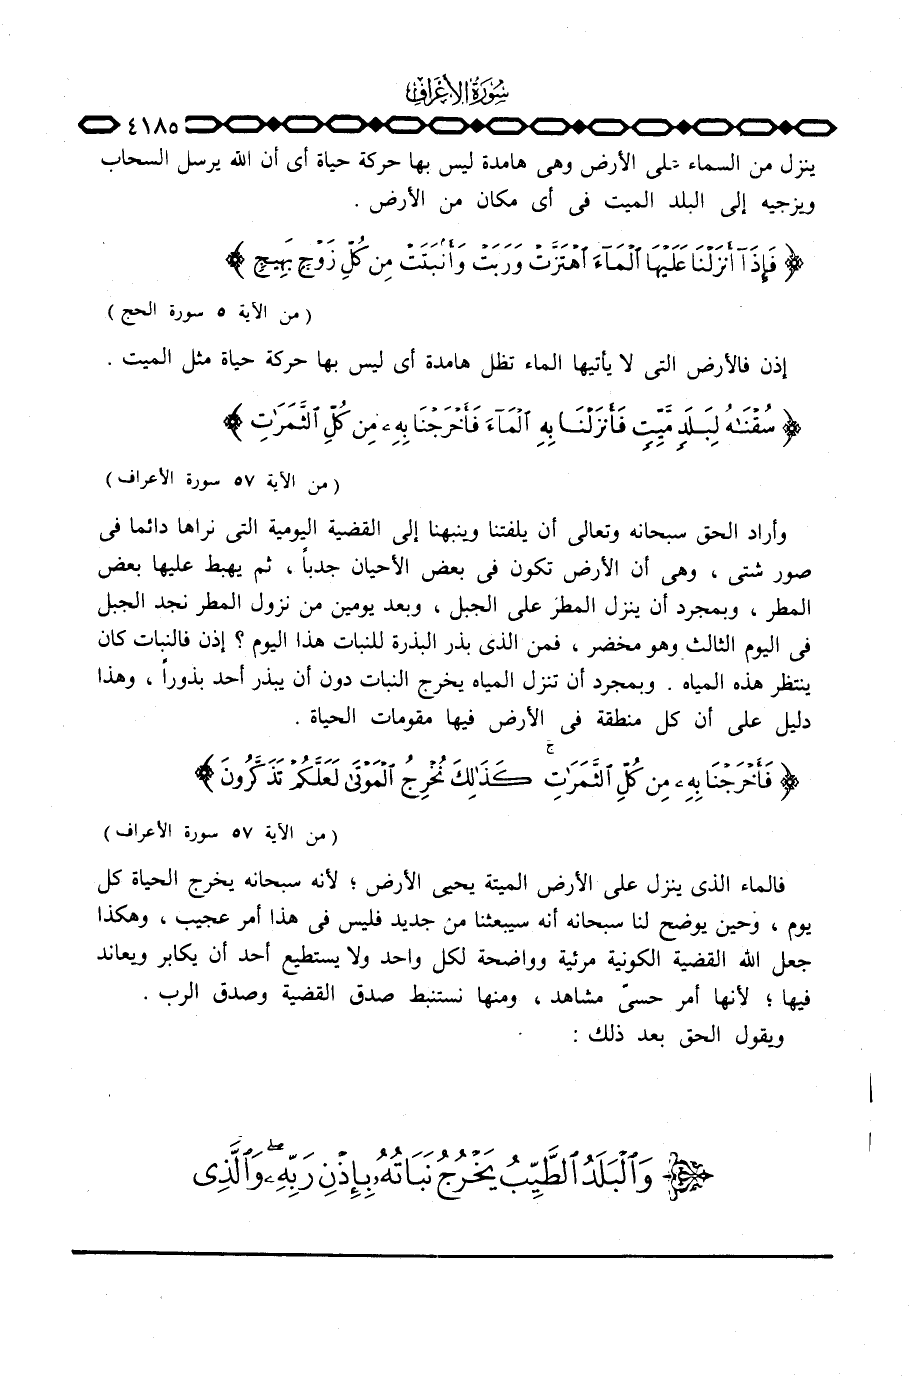 سُورَةُ الأَعْرَافِ
٤١٨٥
ينزل من السماء على الأرض وهى هامدة ليس بها حركة حياة أى أن الله يرسل السحاب
ويزجيه إلى البلد الميت فى أى مكان من الأرض .
﴿ فَإِذَآ أَنزَلْنَا عَلَيْهَا ٱلْمَآءَ ٱهْتَزَّتْ وَرَبَتْ وَأَنۢبَتَتْ مِن كُلِّ زَوْجٍۭ بَهِيجٍ ﴾
( من الآية ٥ سورة الحج )
إذن فالأرض التى لا يأتيها الماء تظل هامدة أى ليس بها حركة حياة مثل الميت .
﴿ سُقْنَٰهُ لِبَلَدٍ مَّيِّتٍ فَأَنزَلْنَا بِهِ ٱلْمَآءَ فَأَخْرَجْنَا بِهِۦ مِن كُلِّ ٱلثَّمَرَٰتِ ﴾
( من الآية ٥٧ سورة الأعراف )
وأراد الحق سبحانه وتعالى أن يلفتنا وينبهنا إلى القضية اليومية التى نراها دائما فى
صور شتى ، وهى أن الأرض تكون فى بعض الأحيان جدباً ، ثم يهبط عليها بعض
المطر ، وبمجرد أن ينزل المطر على الجبل ، وبعد يومين من نزول المطر نجد الجبل
فى اليوم الثالث وهو مخضر ، فمن الذى بذر البذرة للنبات هذا اليوم ؟ إذن فالنبات كان
ينتظر هذه المياه . وبمجرد أن تنزل المياه يخرج النبات دون أن يبذر أحد بذوراً ، وهذا
دليل على أن كل منطقة فى الأرض فيها مقومات الحياة .
﴿ فَأَخْرَجْنَا بِهِۦ مِن كُلِّ ٱلثَّمَرَٰتِ ۚ كَذَٰلِكَ نُخْرِجُ ٱلْمَوْتَىٰ لَعَلَّكُمْ تَذَكَّرُونَ ﴾
( من الآية ٥٧ سورة الأعراف )
فالماء الذى ينزل على الأرض الميتة يحيى الأرض ؛ لأنه سبحانه يخرج الحياة كل
يوم ، وحين يوضح لنا سبحانه أنه سيبعثنا من جديد فليس فى هذا أمر عجيب ، وهكذا
جعل الله القضية الكونية مرئية وواضحة لكل واحد ولا يستطيع أحد أن يكابر ويعاند
فيها ؛ لأنها أمر حسىّ مشاهد ، ومنها نستنبط صدق القضية وصدق الرب .
ويقول الحق بعد ذلك :
وَٱلْبَلَدُ ٱلطَّيِّبُ يَخْرُجُ نَبَاتُهُۥ بِإِذْنِ رَبِّهِۦ ۖ وَٱلَّذِى